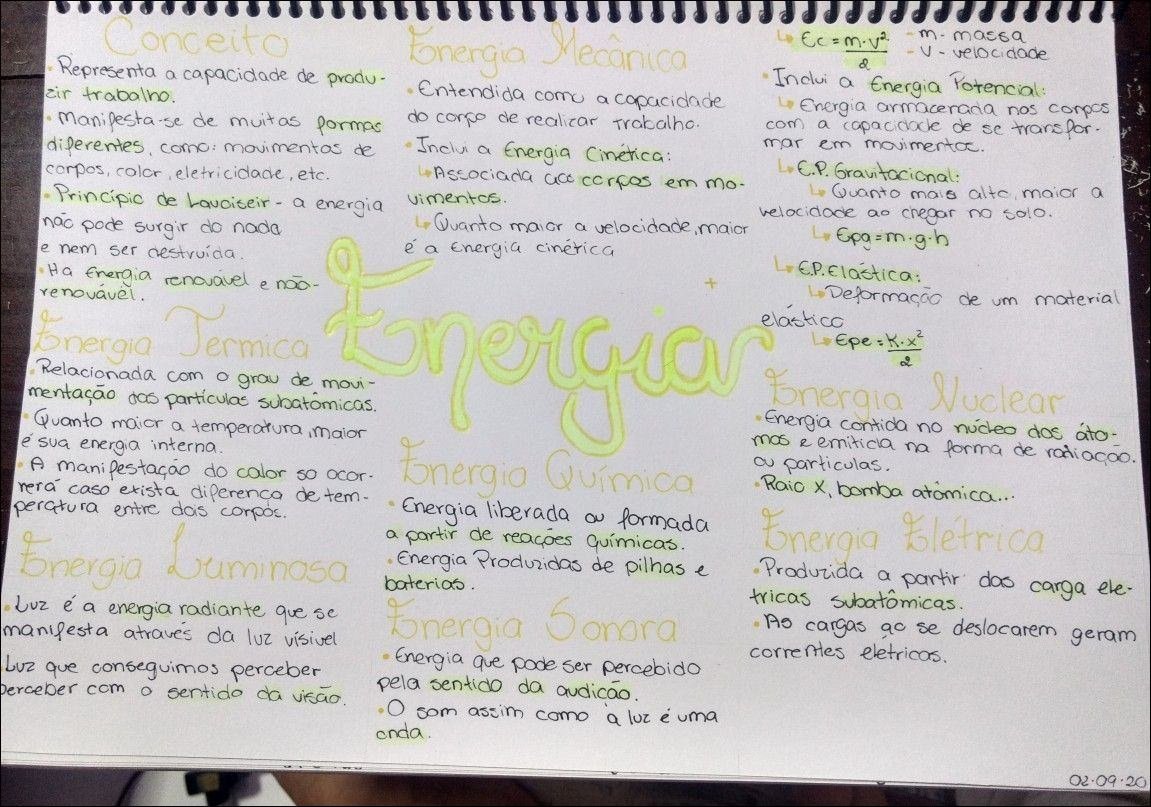 Conceito
• Representa a capacidade de produ-
zir trabalho.
• Manifesta-se de muitas formas
diferentes, como: movimentos de
corpos, calor, eletricidade, etc.
• Princípio de Lavoiseir - a energia
não pode surgir do nada
e nem ser destruída.
• Há Energia renovável e não-
renovável.
Energia Termica
• Relacionada com o grau de movi-
mentação das partículas subatômicas.
• Quanto maior a temperatura, maior
é sua energia interna.
• A manifestação do calor so ocor-
rerá caso exista diferença de tem-
peratura entre dois corpos.
Energia Luminosa
• Luz é a energia radiante que se
manifesta através da luz vísivel
Luz que conseguimos perceber
perceber com o sentido da visão.
Energia Mecânica
• Entendida como a capacidade
do corpo de realizar trabalho.
• Inclui a Energia Cinética:
↳ Associada aos corpos em mo-
vimentos.
↳ Quanto maior a velocidade, maior
é a Energia cinética
Energia
Energia Química
• Energia liberada ou formada
a partir de reações químicas.
• Energia Produzidas de pilhas e
baterias.
Energia Sonora
• Energia que pode ser percebido
pela sentido da audição.
• O som assim como a luz é uma
onda.
↳ Ec = m·v²/2 - m - massa
- V - velocidade
• Inclui a Energia Potencial:
↳ Energia armacenada nos corpos
com a capacidade de se transfor-
mar em movimentos.
↳ E.P. Gravitacional:
↳ Quanto mais alto, maior a
velocidade ao chegar no solo.
↳ Epg = m·g·h
↳ E.P. Elástica:
↳ Deformação de um material
elástico
↳ Epe = K·x²/2
Energia Nuclear
• Energia contida no núcleo dos áto-
mos e emitida na forma de radiação.
ou particulas.
• Raio X, bomba atômica...
Energia Elétrica
• Produzida a partir das carga ele-
tricas subatômicas.
• As cargas ao se deslocarem geram
correntes elétricas.
02.09.20